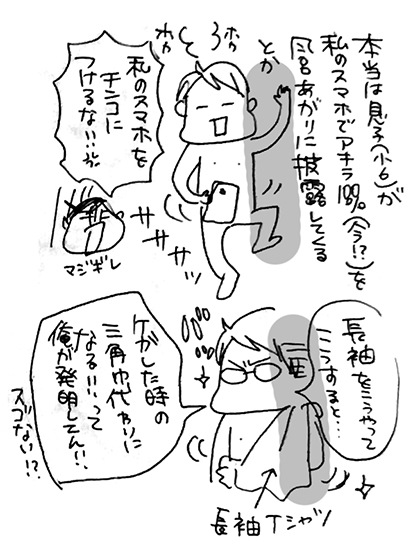 本当は息子(小6)が
私のスマホでアキラ100%(今!?)を
風呂あがりに披露してくる
とか
私のスマホを
チンコに
つけるない…っ
マジギレ
ササササッ
長袖をこうやって
こうすると…
ケガした時の
三角巾代わりに
なる…って
俺が発明してん!!
スゴない!?
長袖Tシャツ